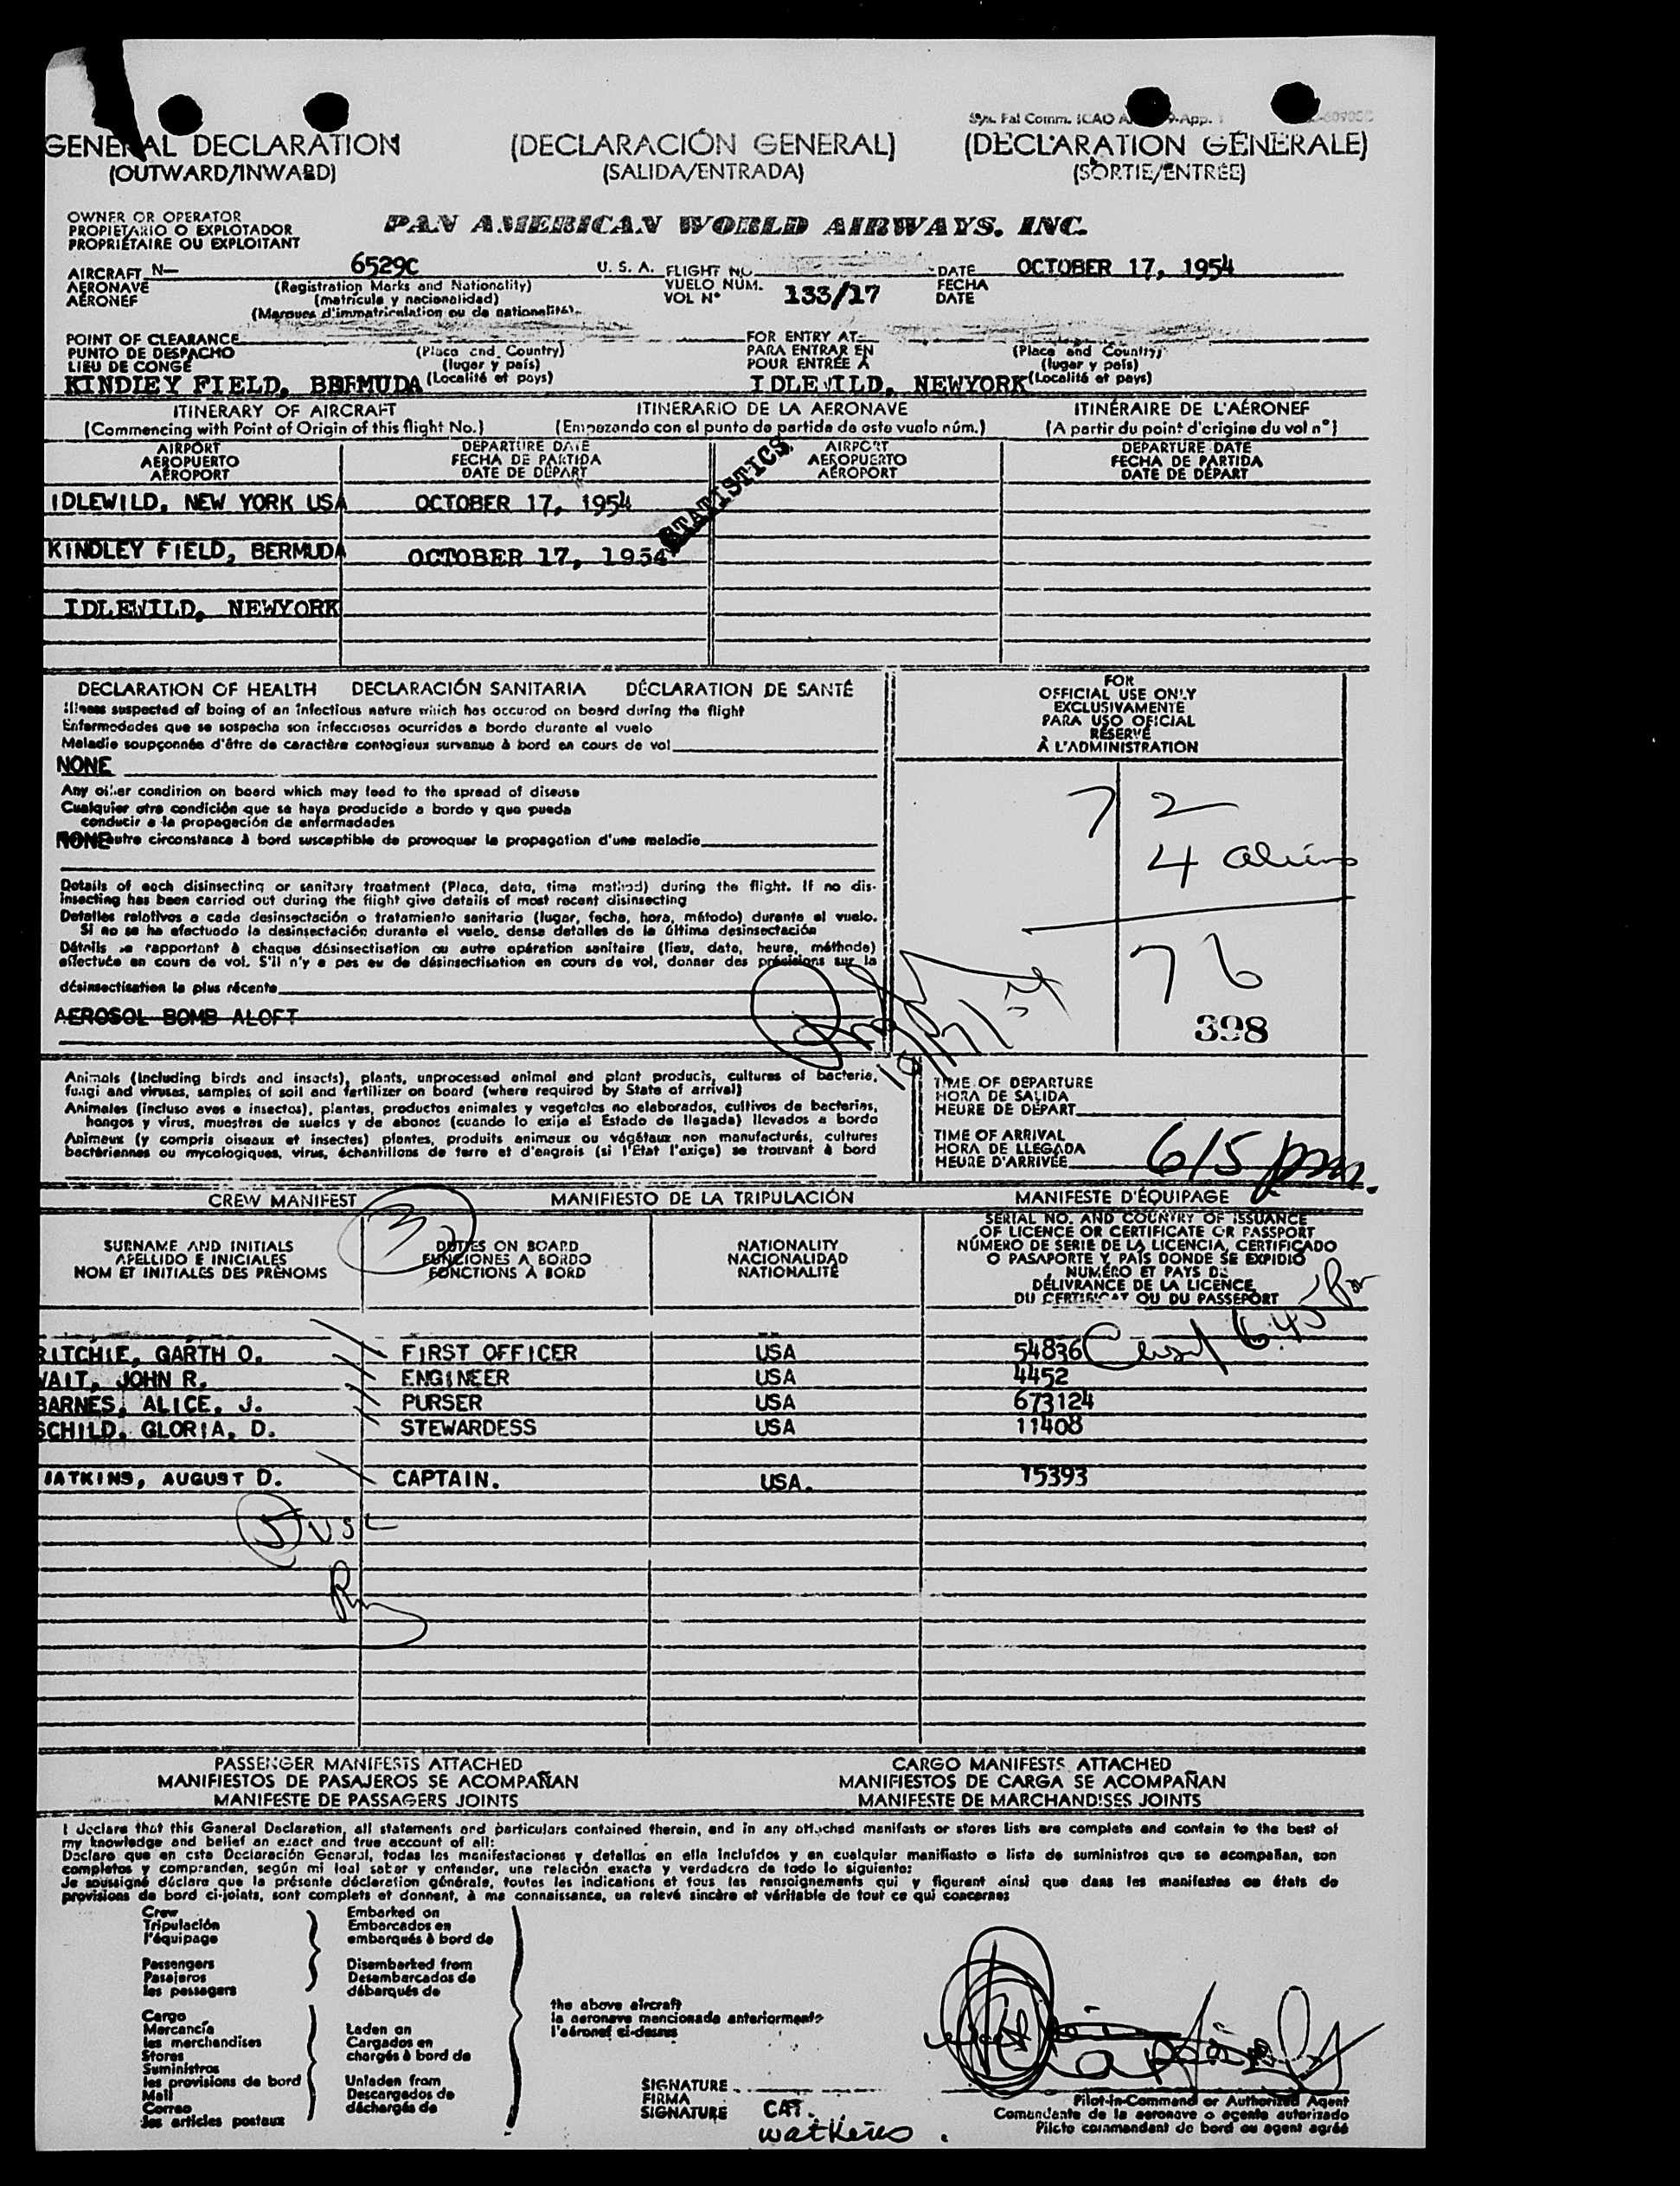 Sys. Fal Comm. ICAO 9-App. 1
GENERAL DECLARATION (DECLARACIÓN GENERAL) (DÉCLARATION GÉNÉRALE)
(OUTWARD/INWARD) (SALIDA/ENTRADA) (SORTIE/ENTRÉE)
OWNER OR OPERATOR
PROPIETARIO O EXPLOTADOR
PROPRIÉTAIRE OU EXPLOITANT
PAN AMERICAN WORLD AIRWAYS, INC.
AIRCRAFT N— 6529C U. S. A. FLIGHT NO. DATE OCTOBER 17, 1954
AERONAVE (Registration Marks and Nationality) VUELO NÚM. 133/17 FECHA
AÉRONEF (matrícula y nacionalidad) VOL N° DATE
(Marques d'immatriculation ou de nationalité)
POINT OF CLEARANCE FOR ENTRY AT
PUNTO DE DESPACHO (Place and Country) PARA ENTRAR EN (Place and Country)
LIEU DE CONGÉ (lugar y país) POUR ENTRÉE À (lugar y país)
KINDLEY FIELD, BERMUDA (Localité et pays) IDLEWILD, NEWYORK (Localité et pays)
ITINERARY OF AIRCRAFT ITINERARIO DE LA AERONAVE ITINÉRAIRE DE L'AÉRONEF
(Commencing with Point of Origin of this flight No.) (Empezando con el punto de partida de este vuelo núm.) (A partir du point d'origine du vol n°)
AIRPORT DEPARTURE DATE AIRPORT DEPARTURE DATE
AEROPUERTO FECHA DE PARTIDA AEROPUERTO FECHA DE PARTIDA
AÉROPORT DATE DE DÉPART AÉROPORT DATE DE DÉPART
STATISTICS
IDLEWILD, NEW YORK USA OCTOBER 17, 1954
KINDLEY FIELD, BERMUDA OCTOBER 17, 1954
IDLEWILD, NEWYORK
DECLARATION OF HEALTH DECLARACIÓN SANITARIA DÉCLARATION DE SANTÉ
Illness suspected of being of an infectious nature which has occured on board during the flight
Enfermedades que se sospecha son infecciosas ocurridas a bordo durante el vuelo
Maladie soupçonnée d'être de caractère contagieux survenue à bord en cours de vol
NONE
Any other condition on board which may lead to the spread of disease
Cualquier otra condición que se haya producido a bordo y que pueda
conducir a la propagación de enfermedades
NONE autre circonstance à bord susceptible de provoquer la propagation d'une maladie
Details of each disinsecting or sanitary treatment (Place, date, time method) during the flight. If no dis-
insecting has been carried out during the flight give details of most recent disinsecting
Detalles relativos a cada desinsectación o tratamiento sanitario (lugar, fecha, hora, método) durante el vuelo.
Si no se ha efectuado la desinsectación durante el vuelo, dense detalles de la última desinsectación
Détails se rapportant à chaque désinsectisation ou autre opération sanitaire (lieu, date, heure, méthode)
effectuée en cours de vol. S'il n'y a pas eu de désinsectisation en cours de vol, donner des précisions sur la
désinsectisation la plus récente
AEROSOL BOMB ALOFT
FOR
OFFICIAL USE ONLY
EXCLUSIVAMENTE
PARA USO OFICIAL
RÉSERVÉ
À L'ADMINISTRATION
72
4 aliens
76
398
Animals (including birds and insects), plants, unprocessed animal and plant products, cultures of bacteria,
fungi and viruses, samples of soil and fertilizer on board (where required by State of arrival)
Animales (incluso aves e insectos), plantas, productos animales y vegetales no elaborados, cultivos de bacterias,
hongos y virus, muestras de suelos y de abonos (cuando lo exija el Estado de llegada) llevados a bordo
Animaux (y compris oiseaux et insectes) plantes, produits animaux ou végétaux non manufacturés, cultures
bactériennes ou mycologiques, virus, échantillons de terre et d'engrais (si l'État l'exige) se trouvant à bord
TIME OF DEPARTURE
HORA DE SALIDA
HEURE DE DÉPART
TIME OF ARRIVAL
HORA DE LLEGADA
HEURE D'ARRIVÉE
615 pm.
CREW MANIFEST MANIFIESTO DE LA TRIPULACIÓN MANIFESTE D'ÉQUIPAGE
3
SURNAME AND INITIALS
APELLIDO E INICIALES
NOM ET INITIALES DES PRÉNOMS
DUTIES ON BOARD
FUNCIONES A BORDO
FONCTIONS À BORD
NATIONALITY
NACIONALIDAD
NATIONALITÉ
SERIAL NO. AND COUNTRY OF ISSUANCE
OF LICENCE OR CERTIFICATE OR PASSPORT
NÚMERO DE SERIE DE LA LICENCIA, CERTIFICADO
O PASAPORTE Y PAÍS DONDE SE EXPIDIÓ
NUMÉRO ET PAYS DE
DÉLIVRANCE DE LA LICENCE
DU CERTIFICAT OU DU PASSEPORT
6.45
RITCHIE, GARTH O. FIRST OFFICER USA 54836
WAIT, JOHN R. ENGINEER USA 4452
BARNES, ALICE, J. PURSER USA 673124
SCHILD, GLORIA, D. STEWARDESS USA 11408
WATKINS, AUGUST D. CAPTAIN. USA. 15393
5 USC
PASSENGER MANIFESTS ATTACHED CARGO MANIFESTS ATTACHED
MANIFIESTOS DE PASAJEROS SE ACOMPAÑAN MANIFIESTOS DE CARGA SE ACOMPAÑAN
MANIFESTE DE PASSAGERS JOINTS MANIFESTE DE MARCHANDISES JOINTS
I declare that this General Declaration, all statements and particulars contained therein, and in any attached manifests or stores lists are complete and contain to the best of
my knowledge and belief an exact and true account of all:
Declaro que en esta Declaración General, todas las manifestaciones y detalles en ella incluídos y en cualquier manifiesto o lista de suministros que se acompañan, son
completos y comprenden, según mi leal saber y entender, una relación exacta y verdadera de todo lo siguiente:
Je soussigné déclare que la présente déclaration générale, toutes les indications et tous les renseignements qui y figurent ainsi que dans les manifestes ou états de
provisions de bord ci-joints, sont complets et donnent, à ma connaissance, un relevé sincère et véritable de tout ce qui concerne:
Crew Embarked on
Tripulación Embarcados en
l'équipage embarqués à bord de
Passengers Disembarked from
Pasajeros Desembarcados de
les passagers débarqués de
the above aircraft
la aeronave mencionada anteriormente
l'aéronef ci-dessus
Cargo
Mercancía Laden on
les merchandises Cargados en
Stores chargés à bord de
Suministros
les provisions de bord Unladen from
Mail Descargados de
Correo déchargés de
les articles postaux
SIGNATURE
FIRMA
SIGNATURE
CAT.
watkins.
Pilot-in-Command or Authorized Agent
Comandante de la aeronave o agente autorizado
Pilote commandant de bord ou agent agréé